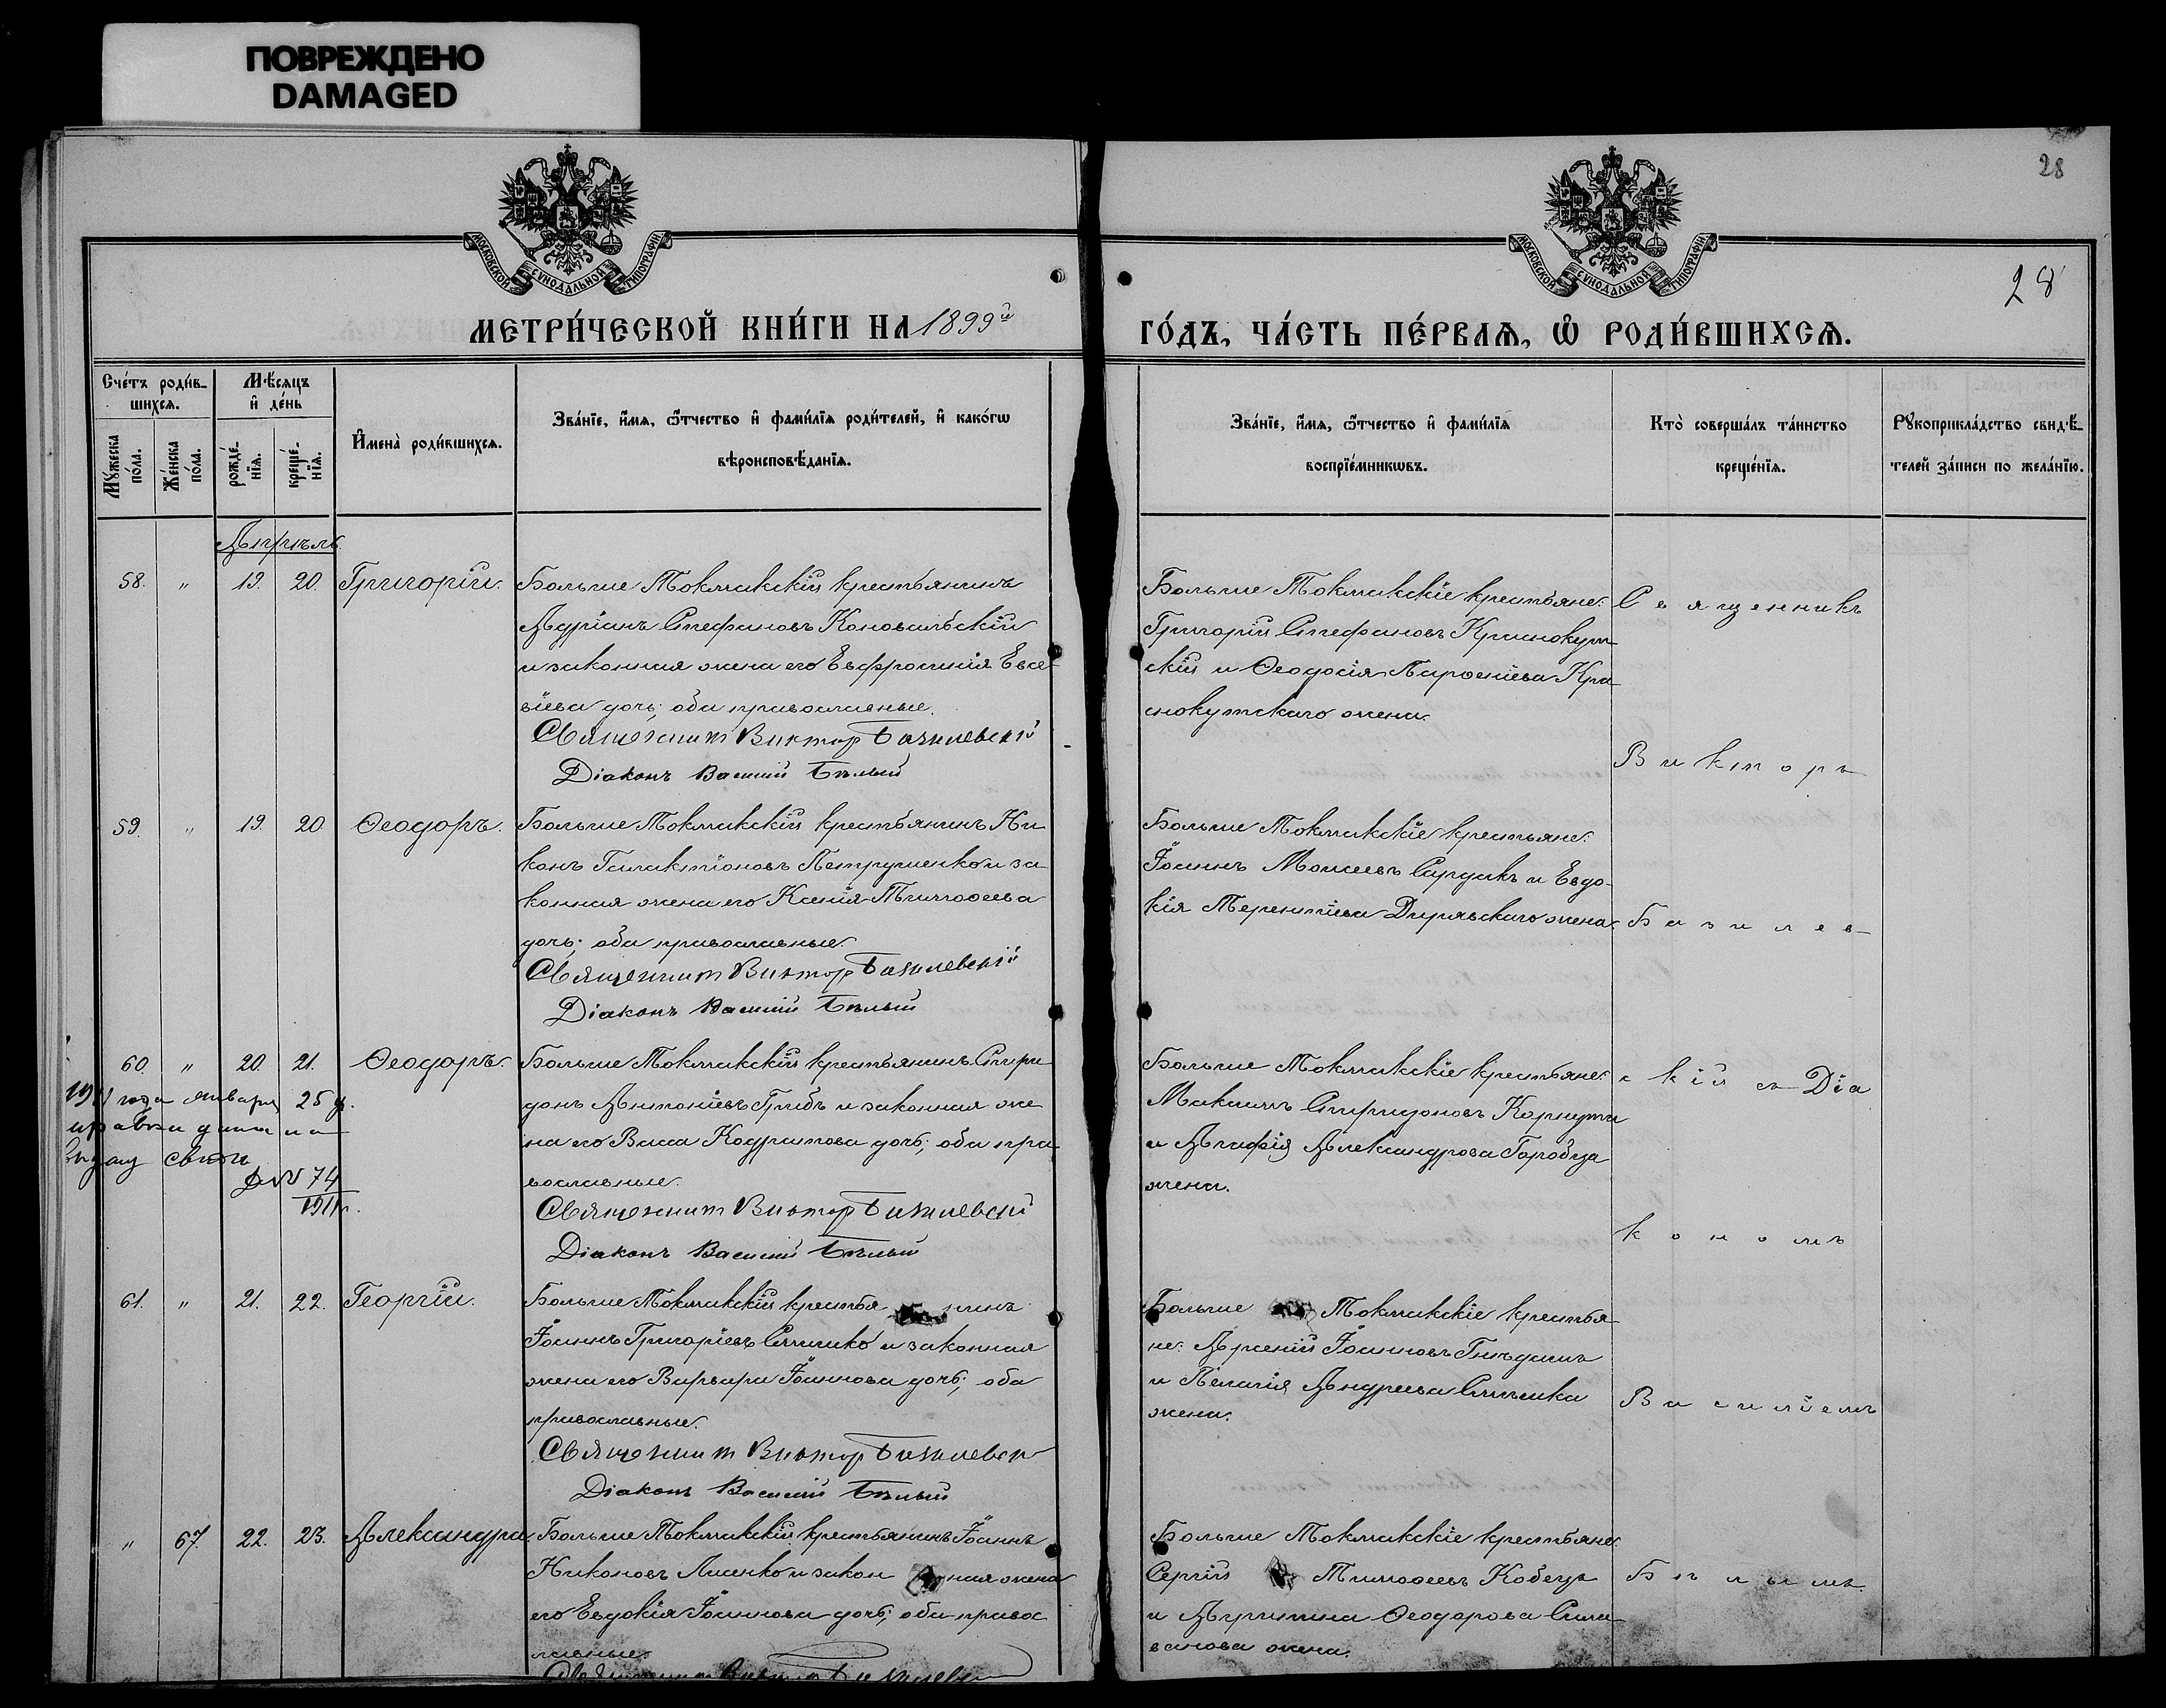 ПОВРЕЖДЕНО
DAMAGED
28
28
МОСКОВСКОЙ СѴНОДАЛЬНОЙ ТИПОГРАФІИ
МОСКОВСКОЙ СѴНОДАЛЬНОЙ ТИПОГРАФІИ
МЕТРИ́ЧЕСКОЙ КНИ́ГИ НА 1899й
ГО́ДЪ, ЧА́СТЬ ПЕ́РВАѦ, Ѡ҆ РОДИ́ВШИХСѦ.
Сче́тъ роди́в-
шихсѧ.
Мꙋ́жеска по́ла.
Же́нска по́ла.
Мѣ́сѧцъ
и҆ де́нь
рожде́-
нїѧ.
креще́-
нїѧ.
И҆мена̀ роди́вшихсѧ.
Зва́нїе, и҆́мѧ, ѻ҆́тчество и҆ фами́лїѧ роди́телей, и҆ како́гѡ
вѣроисповѣ́данїѧ.
Зва́нїе, и҆́мѧ, ѻ҆́тчество и҆ фами́лїѧ
воспрїе́мникѡвъ.
Кто̀ соверша́лъ та́инство
креще́нїѧ.
Рꙋкоприкла́дство свидѣ́-
телей за́писи по жела́нїю.
Апрѣль
58. " 19. 20. Григорій.
Больше Токмакскій крестьянинъ
Адріанъ Стефановъ Коновальскій
и законная жена его Евфросинія Евсе-
віева дочь; оба православные.
Священник Виктор Базилевский
Діаконъ Василий Белый
Больше Токмакскіе крестьяне:
Григорій Стефановъ Краснокут-
скій и Ѳеодосія Парѳеніева Кра-
снокутскаго жена.
59. " 19. 20. Ѳеодоръ.
Больше Токмакскій крестьянинъ Ни-
конъ Галактіоновъ Петрушенко и за-
конная жена его Ксенія Тимоѳеева
дочь; оба православные.
Священник Виктор Базилевский
Діаконъ Василий Белый
Больше Токмакскіе крестьяне:
Іоаннъ Моисеевъ Сардакъ и Евдо-
кія Терентіева жена.
60. " 20. 21. Ѳеодоръ.
1911 года января 25 д.
справка дана на
выдачу
№ 74
1911 г.
Больше Токмакскій крестьянинъ Спири-
донъ Антоніевъ Грибъ и законная же-
на его Васса Кодратова дочь; оба пра-
вославные.
Священник Виктор Базилевский
Діаконъ Василий Белый
Больше Токмакскіе крестьяне:
Максимъ Спиридоновъ
и Агафія Александрова Горобца
жена.
61. " 21. 22. Георгій.
Больше Токмакскій крестьянинъ
Іоаннъ Григоріевъ и законная
жена его Варвара Іоаннова дочь; оба
православные.
Священник Виктор Базилевск
Діаконъ Василий Белый
Больше Токмакскіе крестья-
не: Арсеній Іоанновъ Гнѣдашъ
и Пелагія Андреева
жена.
" 67. 22. 23. Александра.
Больше Токмакскій крестьянинъ Іоаннъ
Никоновъ Лисенко и законная жена
его Евдокія Іоаннова дочь; оба правос-
лавные.
Священник Виктор Базилевск
Больше Токмакскіе крестьяне:
Сергій Тимоѳеевъ Кобецъ
и Агрипина Ѳеодорова Сили-
ванова жена.
Священникъ
Викторъ
Базилев-
скій съ Діа-
кономъ
Василіемъ
Бѣлымъ.